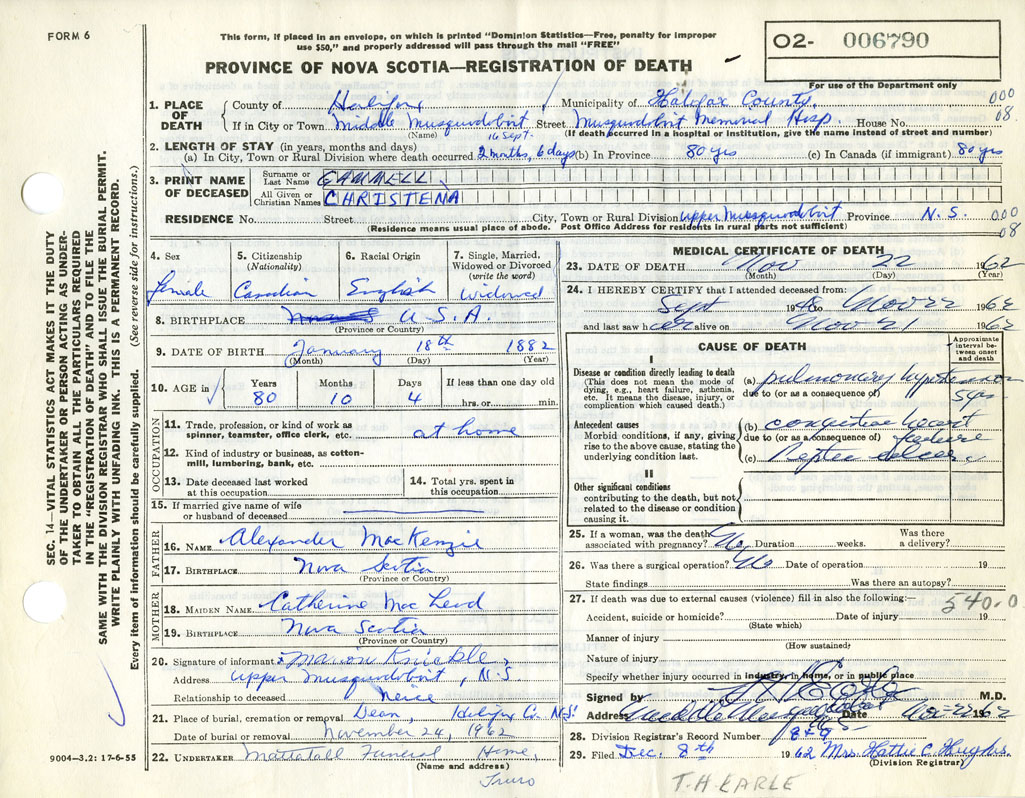 FORM 6
This form, if placed in an envelope, on which is printed "Dominion Statistics—Free, penalty for improper
use $50," and properly addressed will pass through the mail "FREE"
O2- 006790
PROVINCE OF NOVA SCOTIA—REGISTRATION OF DEATH
For use of the Department only
1. PLACE OF DEATH
County of Halifax Municipality of Halifax County. 000
If in City or Town Middle Musquodoboit Street Musquodoboit Memorial Hosp. House No. 08.
(Name) (If death occurred in a hospital or institution, give the name instead of street and number)
2. LENGTH OF STAY (in years, months and days) 16 Sept.
(a) In City, Town or Rural Division where death occurred 2 months, 6 days (b) In Province 80 yrs (c) In Canada (if immigrant) 80 yrs
3. PRINT NAME OF DECEASED
Surname or Last Name GAMMELL
All Given or Christian Names CHRISTENA
RESIDENCE No. Street City, Town or Rural Division Upper Musquodoboit Province N.S. 000
(Residence means usual place of abode. Post Office Address for residents in rural parts not sufficient) 08
4. Sex female
5. Citizenship (Nationality) Canadian
6. Racial Origin English
7. Single, Married, Widowed or Divorced (write the word) widowed
8. BIRTHPLACE U.S.A.
(Province or Country)
9. DATE OF BIRTH January 18th 1882
(Month) (Day) (Year)
10. AGE Years Months Days If less than one day old
80 10 4 hrs. or min.
OCCUPATION
11. Trade, profession, or kind of work as
spinner, teamster, office clerk, etc. at home
12. Kind of industry or business, as cotton-
mill, lumbering, bank, etc.
13. Date deceased last worked
at this occupation
14. Total yrs. spent in
this occupation
15. If married give name of wife
or husband of deceased
FATHER
16. NAME Alexander MacKenzie
17. BIRTHPLACE Nova Scotia
(Province or Country)
MOTHER
18. MAIDEN NAME Catherine MacLeod
19. BIRTHPLACE Nova Scotia
(Province or Country)
20. Signature of informant Marion Knickle
Address Upper Musquodoboit, N.S
Relationship to deceased Neice
21. Place of burial, cremation or removal Dean, Halifax Co. N.S.
Date of burial or removal November 24, 1962
22. UNDERTAKER Mattatall Funeral Home,
(Name and address)
Truro
MEDICAL CERTIFICATE OF DEATH
23. DATE OF DEATH Nov 22 1962
(Month) (Day) (Year)
24. I HEREBY CERTIFY that I attended deceased from:
Sept 1948 to Nov 22 1962
and last saw her alive on Nov 21 1962
CAUSE OF DEATH
Approximate interval between onset and death
I
Disease or condition directly leading to death
(This does not mean the mode of
dying, e.g., heart failure, asthenia,
etc. It means the disease, injury, or
complication which caused death.)
(a) pulmonary
due to (or as a consequence of)
Antecedent causes
Morbid conditions, if any, giving
rise to the above cause, stating the
underlying condition last.
(b) congestive heart
due to (or as a consequence of) failure
(c) Peptic ulcer
II
Other significant conditions
contributing to the death, but not
related to the disease or condition
causing it.
25. If a woman, was the death
associated with pregnancy? No Duration weeks. Was there
a delivery?
26. Was there a surgical operation? No Date of operation 19
State findings Was there an autopsy?
27. If death was due to external causes (violence) fill in also the following:— 540.0
Accident, suicide or homicide? Date of injury 19
(State which)
Manner of injury
(How sustained)
Nature of injury
Specify whether injury occurred in industry, in home, or in public place
Signed by M.D.
Address Middle Musquodoboit Date Nov 22 1962
28. Division Registrar's Record Number 849
29. Filed Dec. 8th 1962 Mrs. Hattie C. Hughes.
(Division Registrar)
T.H. EARLE
SEC. 14—VITAL STATISTICS ACT MAKES IT THE DUTY
OF THE UNDERTAKER OR PERSON ACTING AS UNDER-
TAKER TO OBTAIN ALL THE PARTICULARS REQUIRED
IN THE "REGISTRATION OF DEATH" AND TO FILE THE
SAME WITH THE DIVISION REGISTRAR WHO SHALL ISSUE THE BURIAL PERMIT.
WRITE PLAINLY WITH UNFADING INK. THIS IS A PERMANENT RECORD.
Every item of information should be carefully supplied. (See reverse side for instructions.)
9004—3.2: 17-6-55